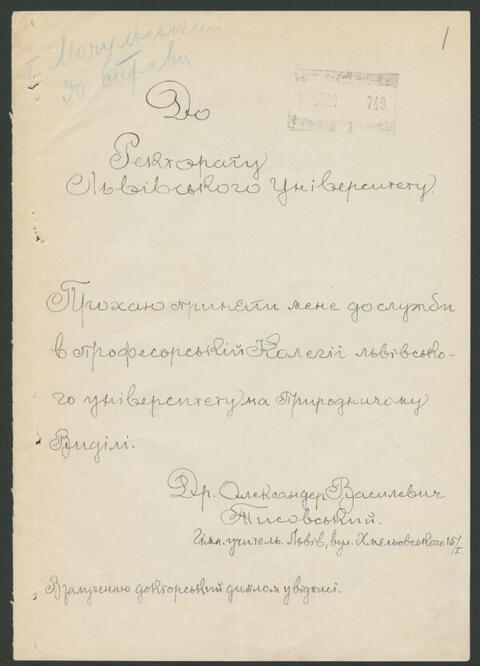 І Мочульський
до справи
1
749
До
Ректорату
Львівського університету.
Прохаю приняти мене до служби
в професорській Колегії львівсько-
го університету на Природничому
Виділі.
Др. Олександер Василевич
Тисовський.
Гімн. учитель. Львів, вул. Хмельовського 15/I
В залученню докторський диплом у відписі.